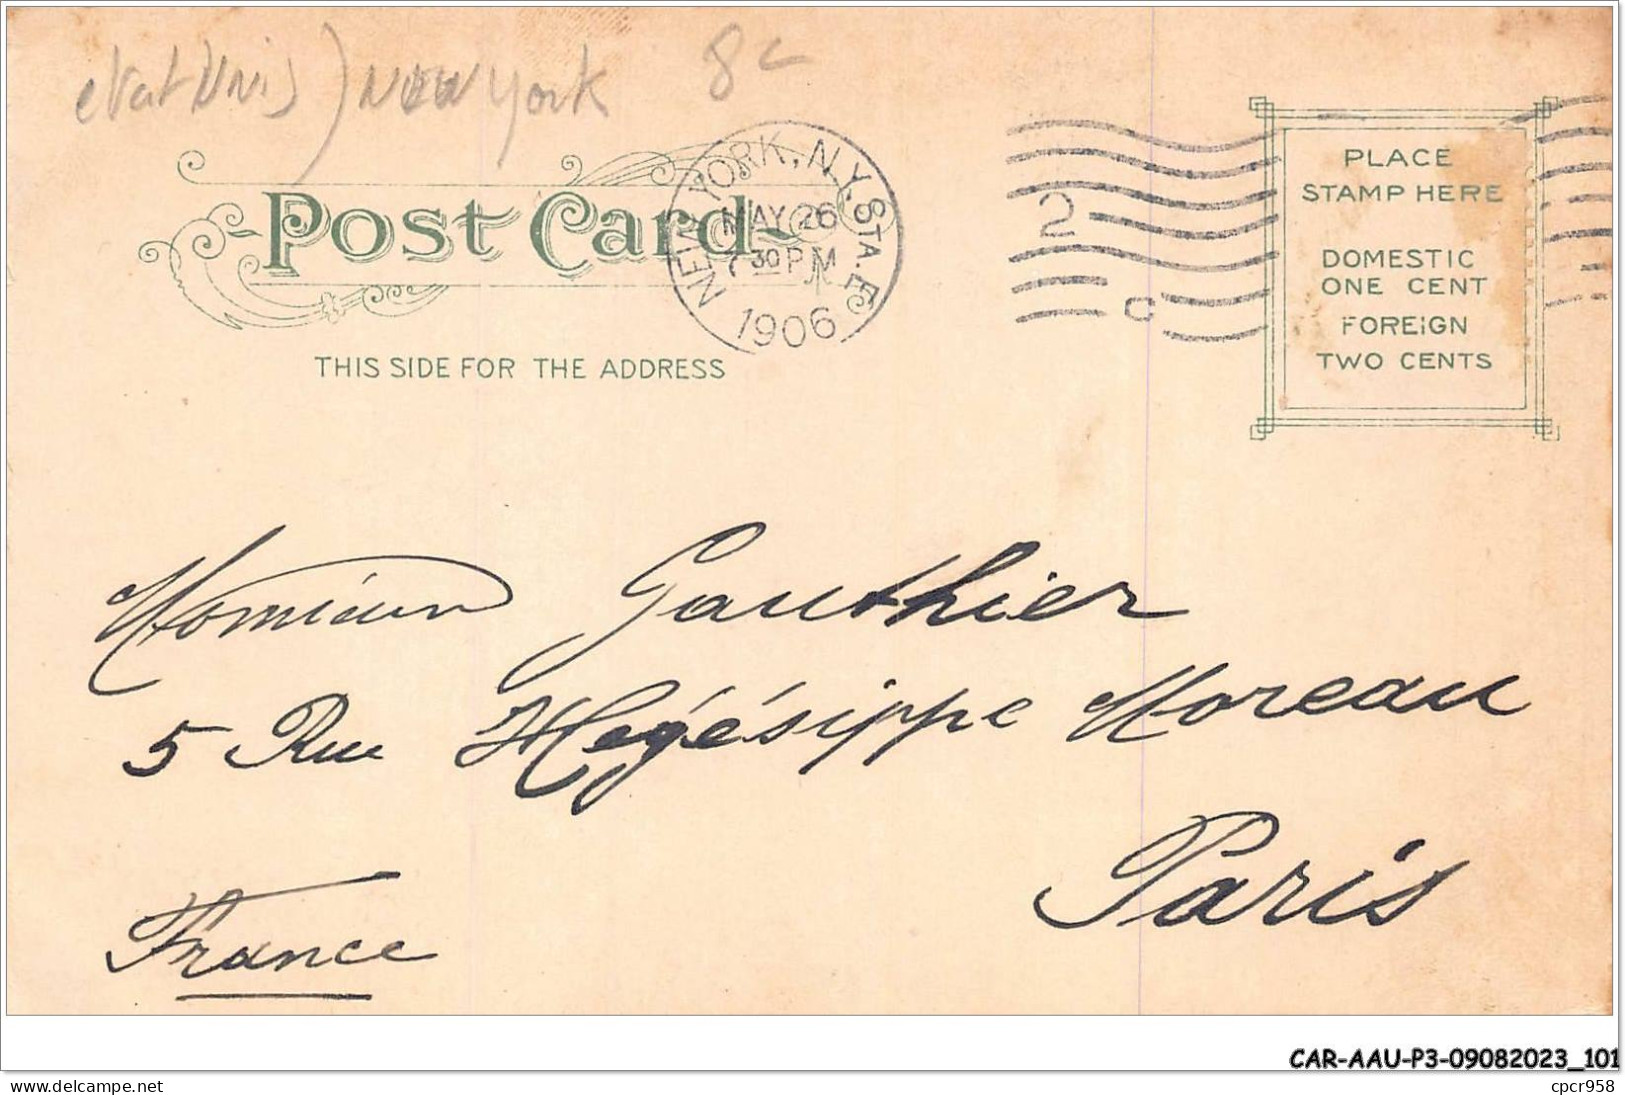 etat Unis) New York 8c
Post Card
THIS SIDE FOR THE ADDRESS
NEW YORK, N.Y. STA. E
MAY 26
7 30 PM
1906
2
C
PLACE
STAMP HERE
DOMESTIC
ONE CENT
FOREIGN
TWO CENTS
Monsieur Gauthier
5 Rue Hégésippe Moreau
Paris
France
CAR-AAU-P3-09082023_101
cpcr958